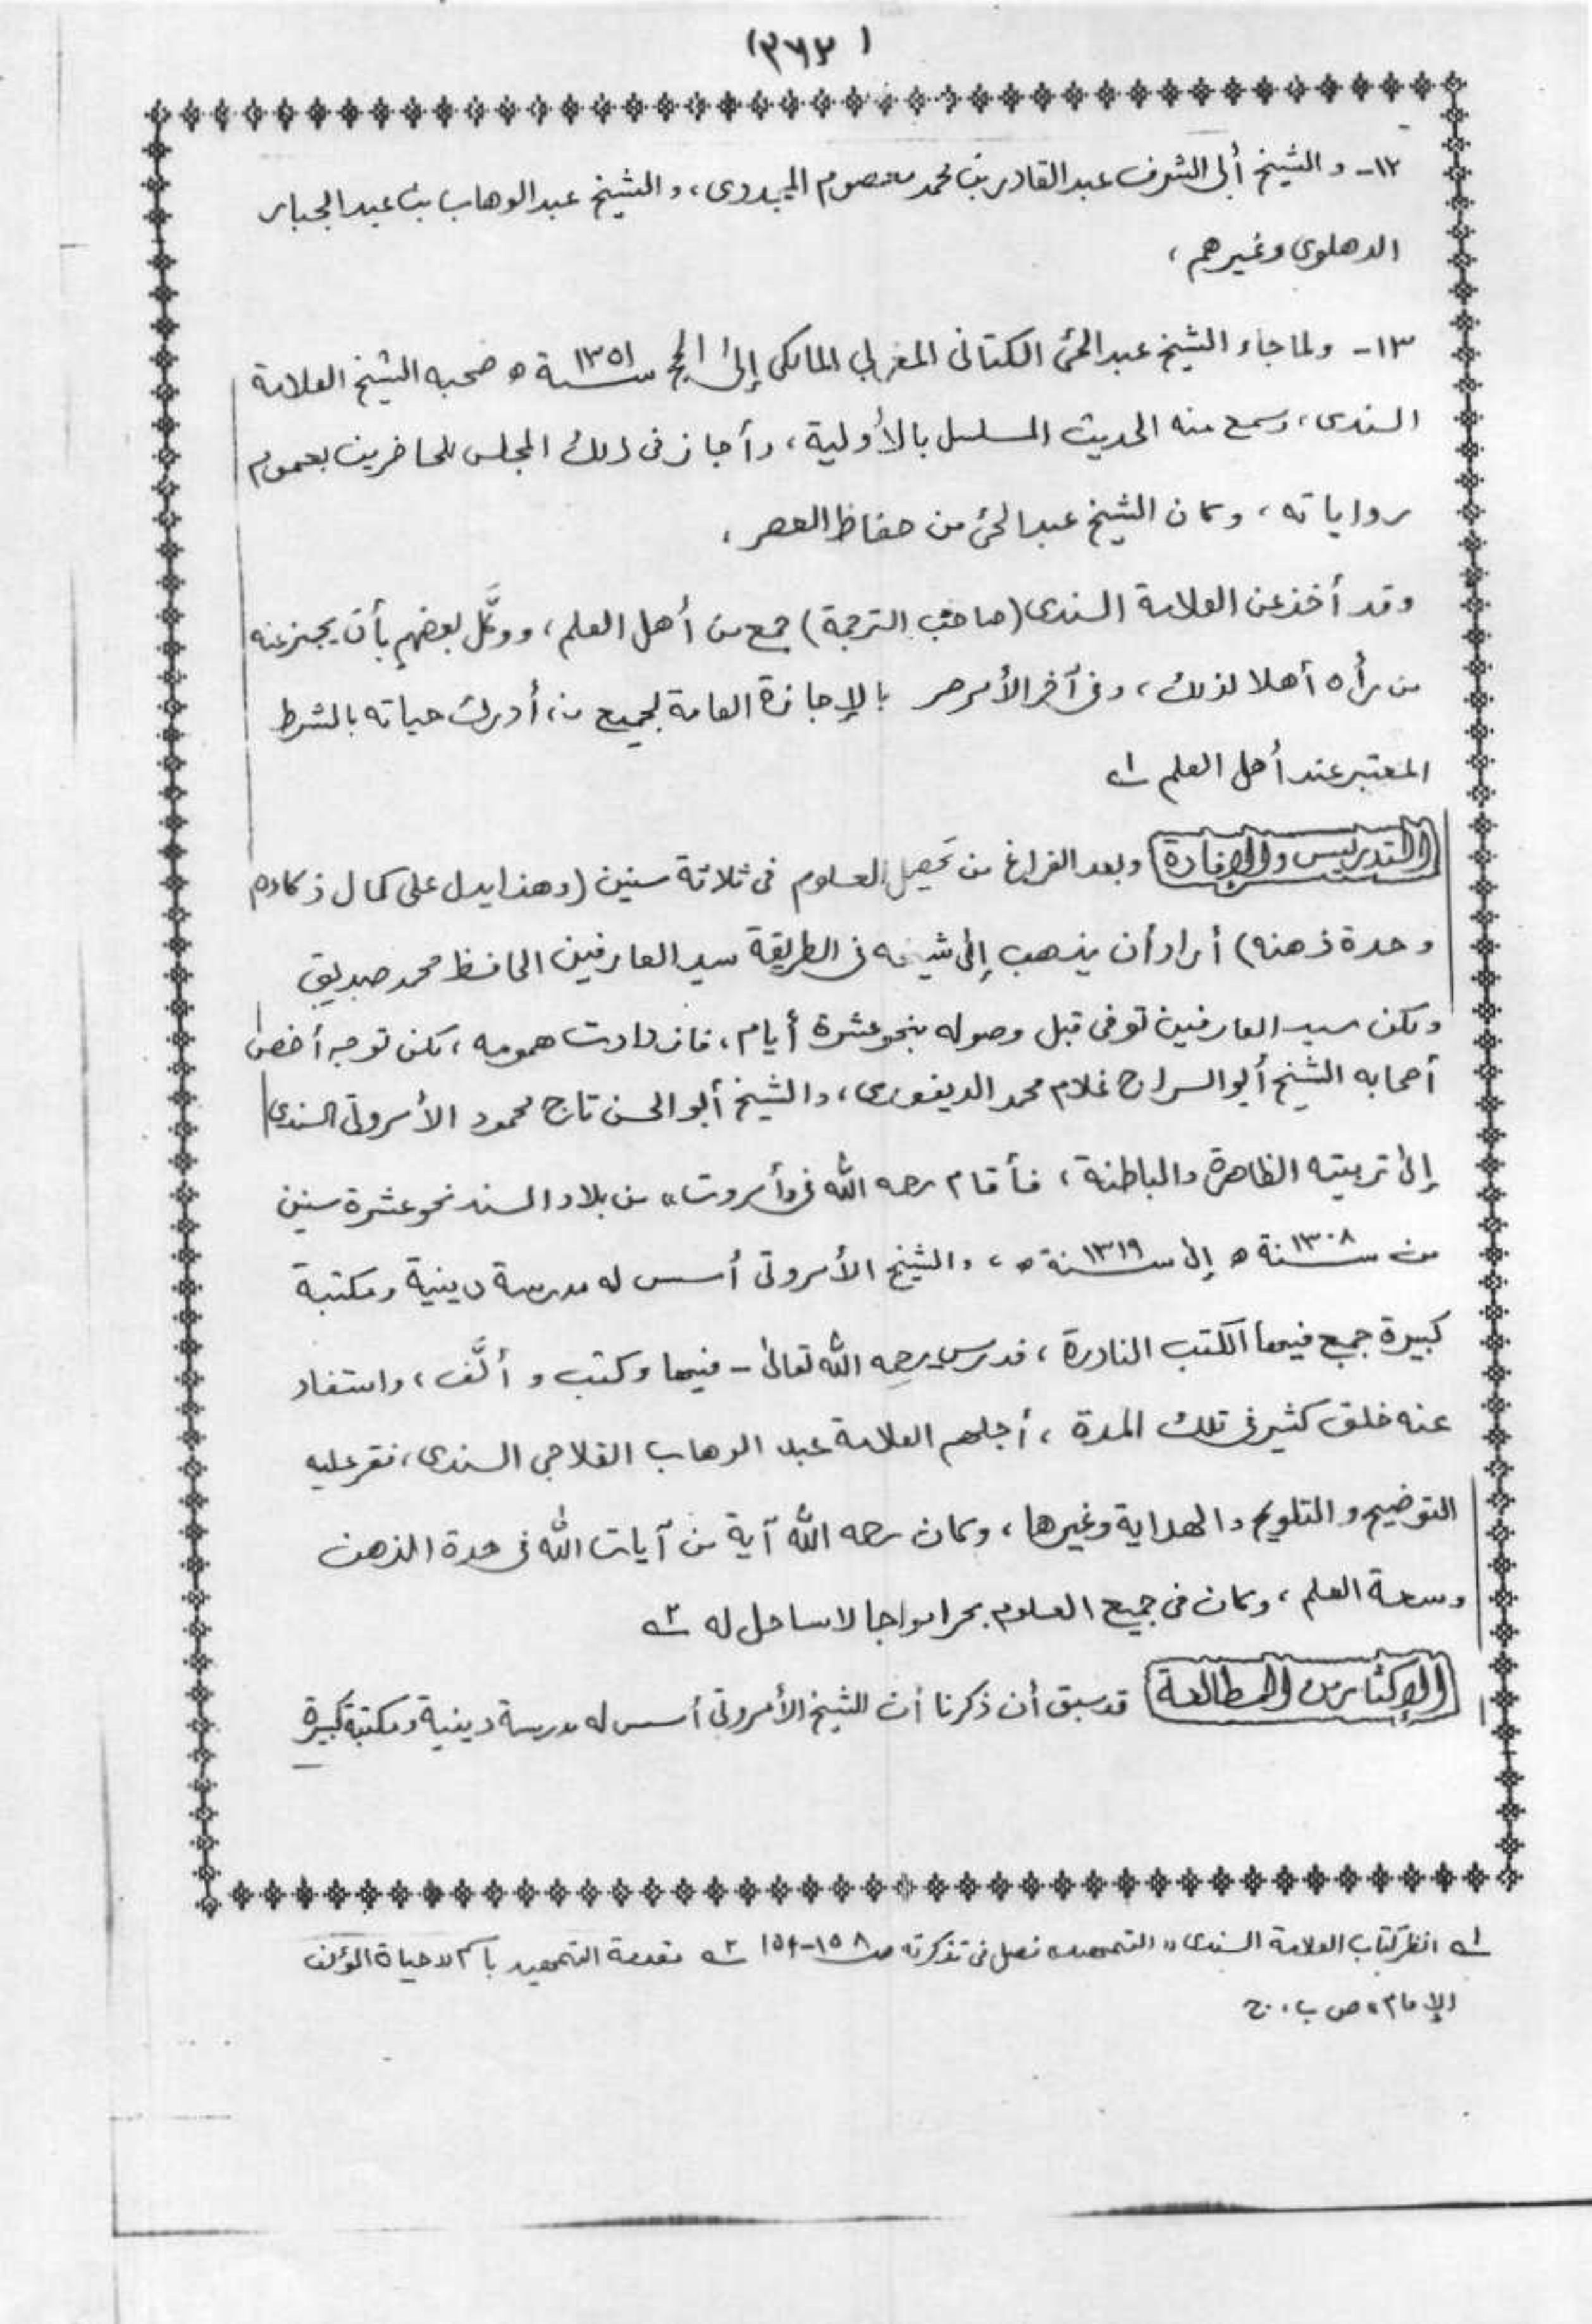 (٣٦٢)
١٢- والشيخ أبى الشرف عبد القادر بن محمد معصوم المجددى، والشيخ عبد الوهاب بن عبد الجبار
الدهلوى وغيرهم،
١٣- ولما جاء الشيخ عبد الحئ الكتانى المغربي المالكى إلى الحج سنة ١٣٥١ ه صحبه الشيخ العلامة
السندى، وسمع منه الحديث المسلسل بالأولية، وأجاز فى ذلك المجلس للحاضرين بعموم
رواياته، وكان الشيخ عبد الحئ من حفاظ العصر،
وقد أخذ عن العلامة السندى (صاحب الترجمة) جمع من أهل العلم، ووكَّل بعضهم بأن يجيز عنه
من رأه أهلا لذلك، وفى آخر الأمر بالإجازة العامة لجميع من أدرك حياته بالشرط
المعتبر عند أهل العلم ١ه
التدريس والإفادة وبعد الفراغ من تحصيل العلوم فى ثلاثة سنين (وهذا يدل على كمال ذكاوه
وحدة ذهنه) أراد أن يذهب إلى شيخه فى الطريقة سيد العارفين الحافظ محمد صديق
ولكن سيد العارفين توفى قبل وصوله بنحو عشرة أيام، فازدادت همومه، لكن توجه أخص
أصحابه الشيخ أبو السراج غلام محمد الدينفورى، والشيخ أبو الحسن تاج محمود الأمروتى السندى
إلى تربيته الظاهرة والباطنة، فأقام رحمه الله فى «أمروت» من بلاد السند نحو عشرة سنين
من سنة ١٣٠٨ ه إلى سنة ١٣١٩ ه، والشيخ الأمروتى أسس له مدرسة دينية ومكتبة
كبيرة جمع فيها الكتب النادرة، فدرس رحمه الله تعالى - فيها وكتب و ألَّف، واستفاد
عنه خلق كثير فى تلك المدة، أجلهم العلامة عبد الوهاب الفلاحى السندى، فقر عليه
التوضيح والتلويح والهداية وغيرها، وكان رحمه الله آية من آيات الله فى حدة الذهن
وسعة العلم، وكان فى جميع العلوم بحرا مواجا لا ساحل له ٢ه
الإكثار من المطالعة قد سبق أن ذكرنا أن الشيخ الأمروتى أسس له مدرسة دينية ومكتبة كبيرة
١ه انظر كتاب العلامة السندى «التمهيد» فصل فى تذكرته ص ١٥٨-١٥٤ ٢ه مقدمة التمهيد باسم «حياة المؤلف
الإمام» ص ب، ج